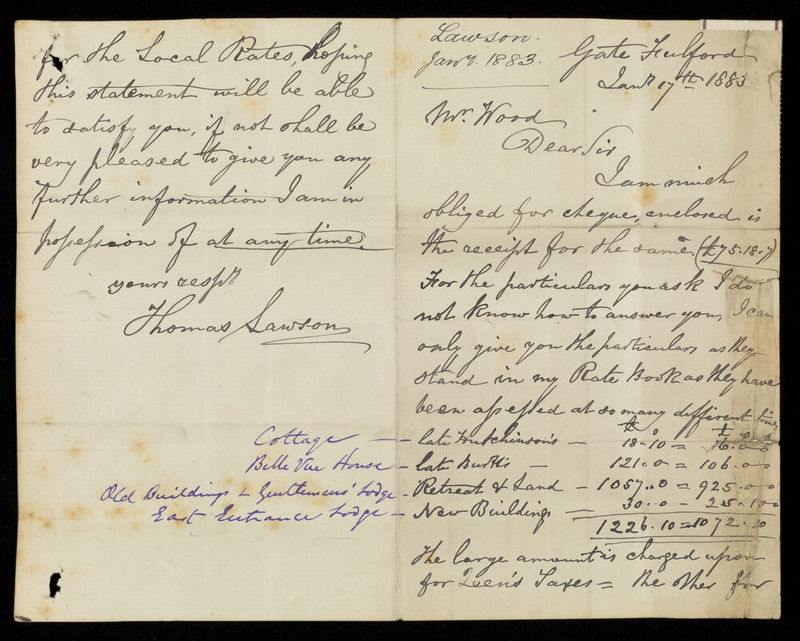 Lawson.
Janry. 1883.
Gate Fulford
Janry 17th 1883
Mr. Wood
Dear Sir
I am much
obliged for cheque, enclosed is
the receipt for the same (£75.18.7)
For the particulars you ask I do
not know how to answer you, I can
only give you the particulars as they
stand in my Rate Book as they have
been assessed at so many different times
£ £
Cottage —– late Hutchinson's — 18..10 = 16..0..0
Belle Vue House – late Burtt's — 121..0 = 106..0..0
Old Buildings & Gentlemens' Lodge - Retreat & Land – 1057..0 = 925..0..0
East Entrance Lodge – New Buildings — 30..0 – 25..10..0
1226.10 = 1072.10
The large amount is charged upon
for Queen's Taxes = the other for
for the Local Rates, hoping
this statement will be able
to satisfy you, if not shall be
very pleased to give you any
further information I am in
possession of at any time.
yours respt
Thomas Lawson